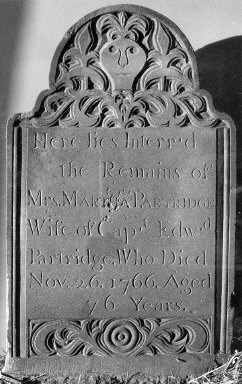 Here lies Interr'd
the Remains of
Mrs. MARTHA PARTRIDGE
Wife of Capt. Edwd.
Partridge, Who Died
Nov. 26. 1766. Aged
76 Years.